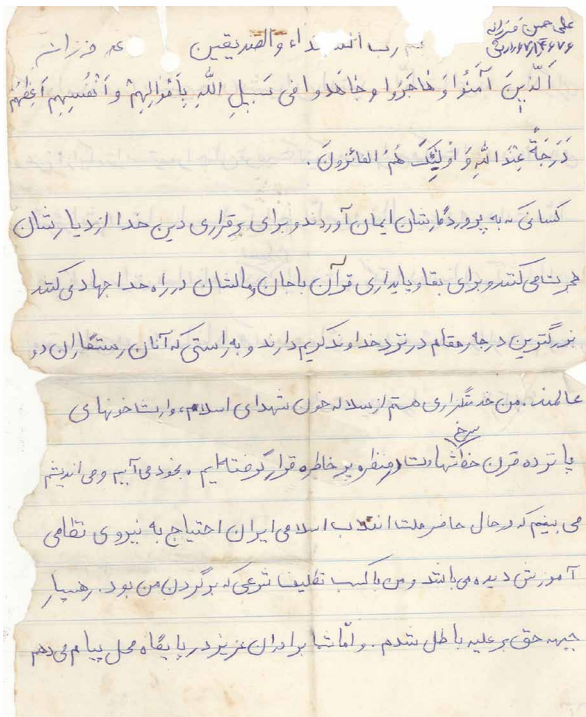 علی حسن فرزانه
رب الشهداء والصدیقین
اَلَّذینَ آمَنُوا وَ هٰاجَرُوا و جٰاهَدوا فی سَبیلِ اللّهِ بِاَموالِهِمْ و اَنْفُسِهِم اَعظَمُ
دَرَجَةً عِنْدَ اللّهِ وَ اُولٰئِکَ هُمُ الفائزونَ .
کسانیکه به پروردگارشان ایمان آوردند و برای برقراری دین خدا از دیارشان
هجرت می کنند و برای بقا و پایداری قرآن با جان و مالشان در راه خدا جهاد می کنند
بزرگترین درجه و مقام در نزد خداوند کریم دارند و به راستی که آنان رستگاران دو
عالمند . من خدمتگزاری هستم از سلاله خون شهدای اسلام و وارث خونهای
پانزده قرن خط سرخ شهادت در منظره پر خاطره قرار گرفته ایم . بخود می آییم و می اندیشم
می بینم که در حال حاضر ملت انقلاب اسلامی ایران احتیاج به نیروی نظامی
آموزش دیده می باشد و من با کسب تکلیف شرعی که بر گردن من بود . رهسپار
جبهه حق بر علیه باطل شدم . و امّا شما برادران عزیز در پایگاه محل پیام می دهم